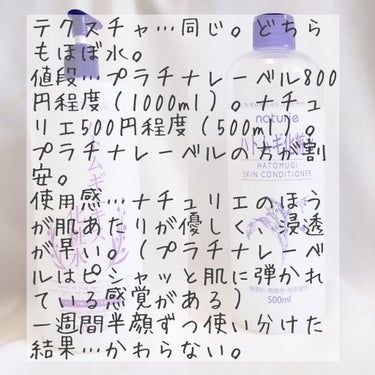 テクスチャ…同じ。どちら
もほぼ水。
値段…プラチナレーベル800
円程度（1000ml）。ナチュ
リエ500円程度（500ml）。
プラチナレーベルの方が割
安。
使用感…ナチュリエのほう
が肌あたりが優しく、浸透
が早い。（プラチナレーベ
ルはピシャッと肌に弾かれ
ている感覚がある）
一週間半顔ずつ使い分けた
結果…かわらない。
naturie
ハトムギ化粧水
HATOMUGI
SKIN CONDITIONER
500ml
化粧水